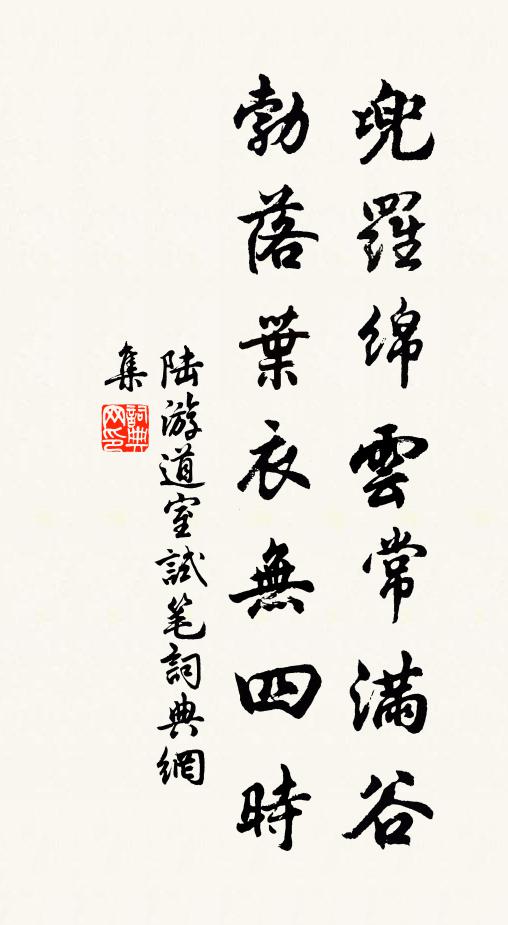 兜羅綿雲常滿谷
勃落葉衣無四時
陸游道室試笔詞典網
集
詞典网印